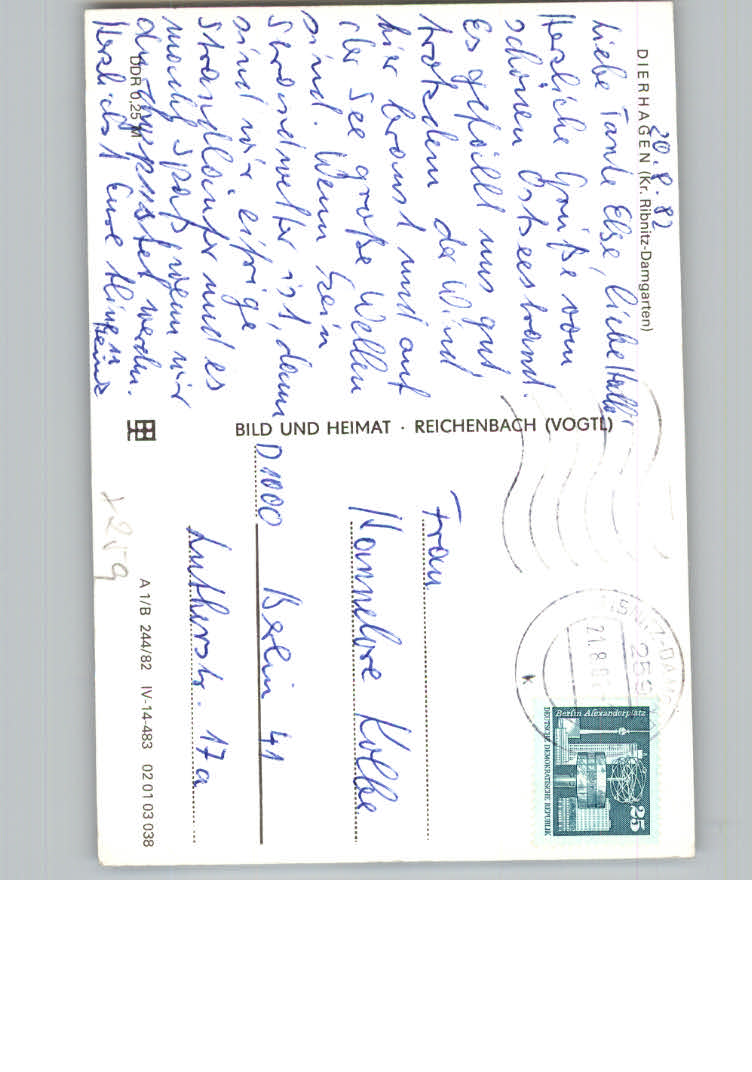 DIERHAGEN (Kr. Ribnitz-Damgarten)
20.8.82
Liebe Tante Else, liebe
Herzliche Grüße vom
schönen Ostseestrand.
Es gefällt uns gut
trotzdem der Wind
hier braust und auf
der See große Wellen
sind. Wenn kein
Strandwetter ist, dann
sind wir eifrige
Strandläufer und es
macht Spaß wenn wir
werden.
Herzlichst Eure
Heinz
DDR 0,25 M
BILD UND HEIMAT · REICHENBACH (VOGTL)
Frau
Hannelore Kolbe
D 1000 Berlin 41
Lutherstr. 17a
A 1/B 244/82 IV-14-483 02 01 03 038
259
21.8.
k
Berlin Alexanderplatz
25
DEUTSCHE DEMOKRATISCHE REPUBLIK